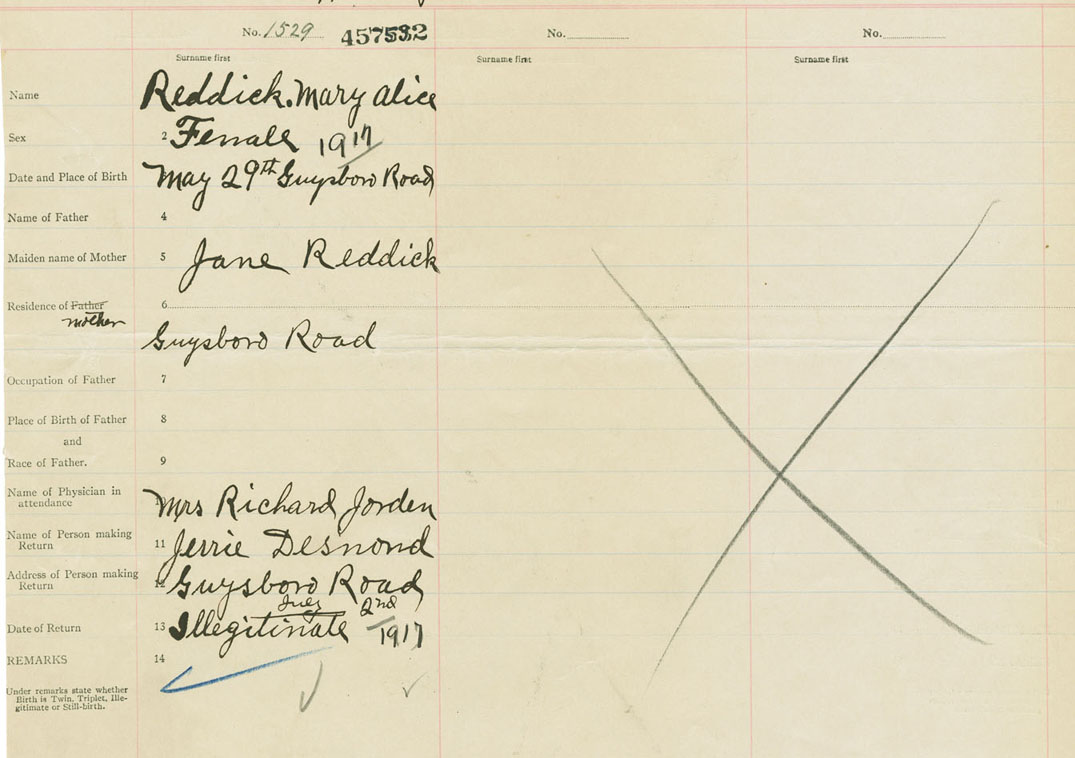 No. 1529 457532 No. No.
Surname first Surname first Surname first
Name Reddick. Mary Alice
Sex 2 Female 1917
Date and Place of Birth May 29th Guysboro Road
Name of Father 4
Maiden name of Mother 5 Jane Reddick
Residence of Father 6
mother
Guysboro Road
Occupation of Father 7
Place of Birth of Father 8
and
Race of Father. 9
Name of Physician in
attendance Mrs Richard Jorden
Name of Person making
Return 11 Jerrie Desmond
Address of Person making
Return 12 Guysboro Road
July 2nd
Date of Return 13 Illegitimate 1917
REMARKS 14
Under remarks state whether
Birth is Twin, Triplet, Ille-
gitimate or Still-birth.